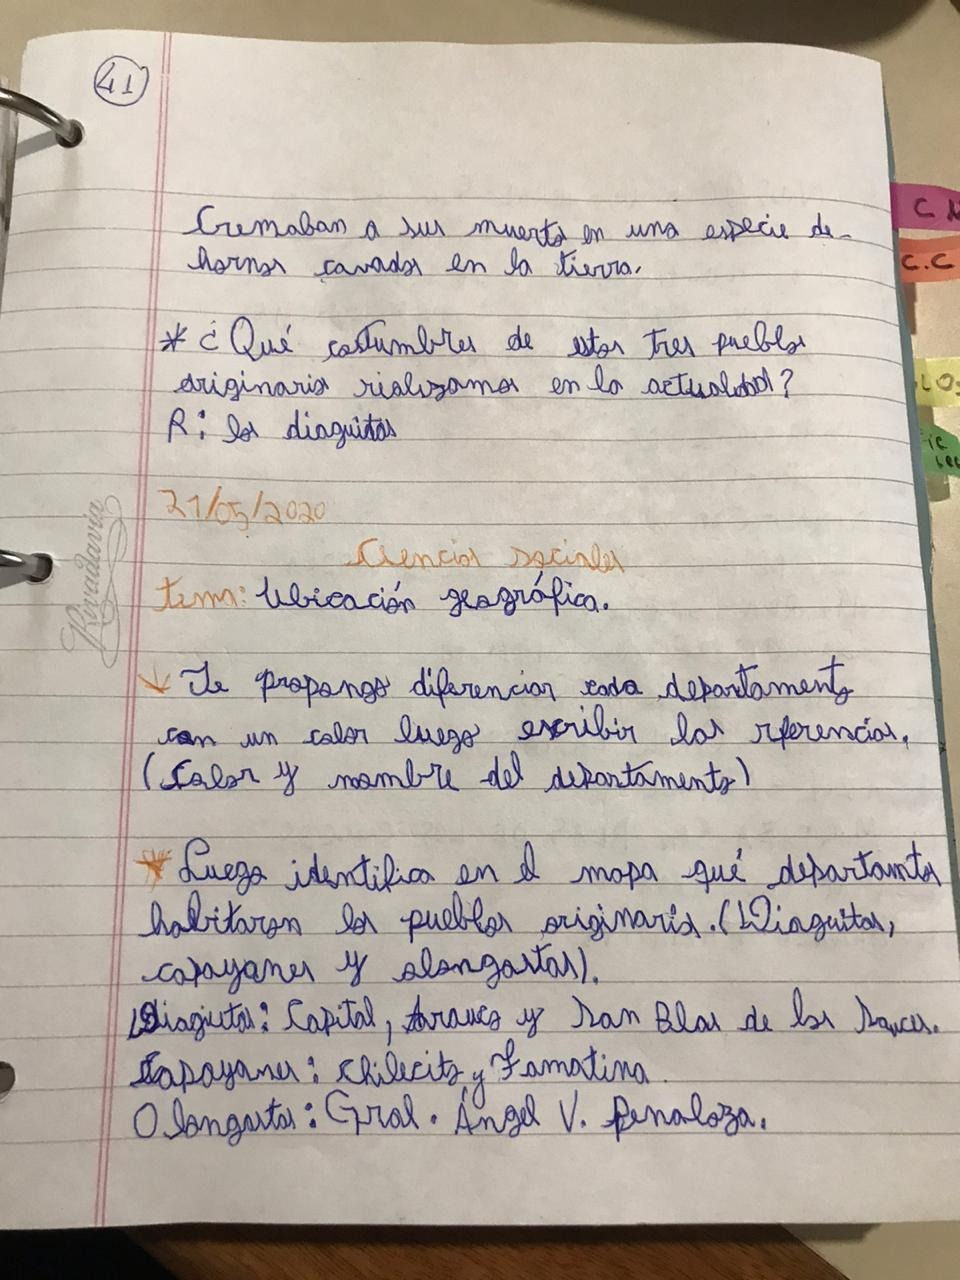 41
Cremaban a sus muertos en una especie de
hornos cavados en la tierra.
* ¿Qué costumbres de estos tres pueblos
originarios rializamos en la actualidad?
R: los diaguitas
21/05/2020
Ciencias sociales
tema: Ubicación geográfica.
Te propongo diferenciar cada departamento
con un color luego escribir las rferencias.
(Color y nombre del departamento)
* Luego identifica en el mapa qué departamtos
habitaron los pueblos originarios. (Diaguitas,
capayanes y olongastas).
Diagiutas: Capital, Arauco y San Blas de los Sauces.
Capayanes: Chilecito y Famatina
Olongastas: Gral. Ángel V. Penaloza.
Rivadavia
C N
C.C
LO